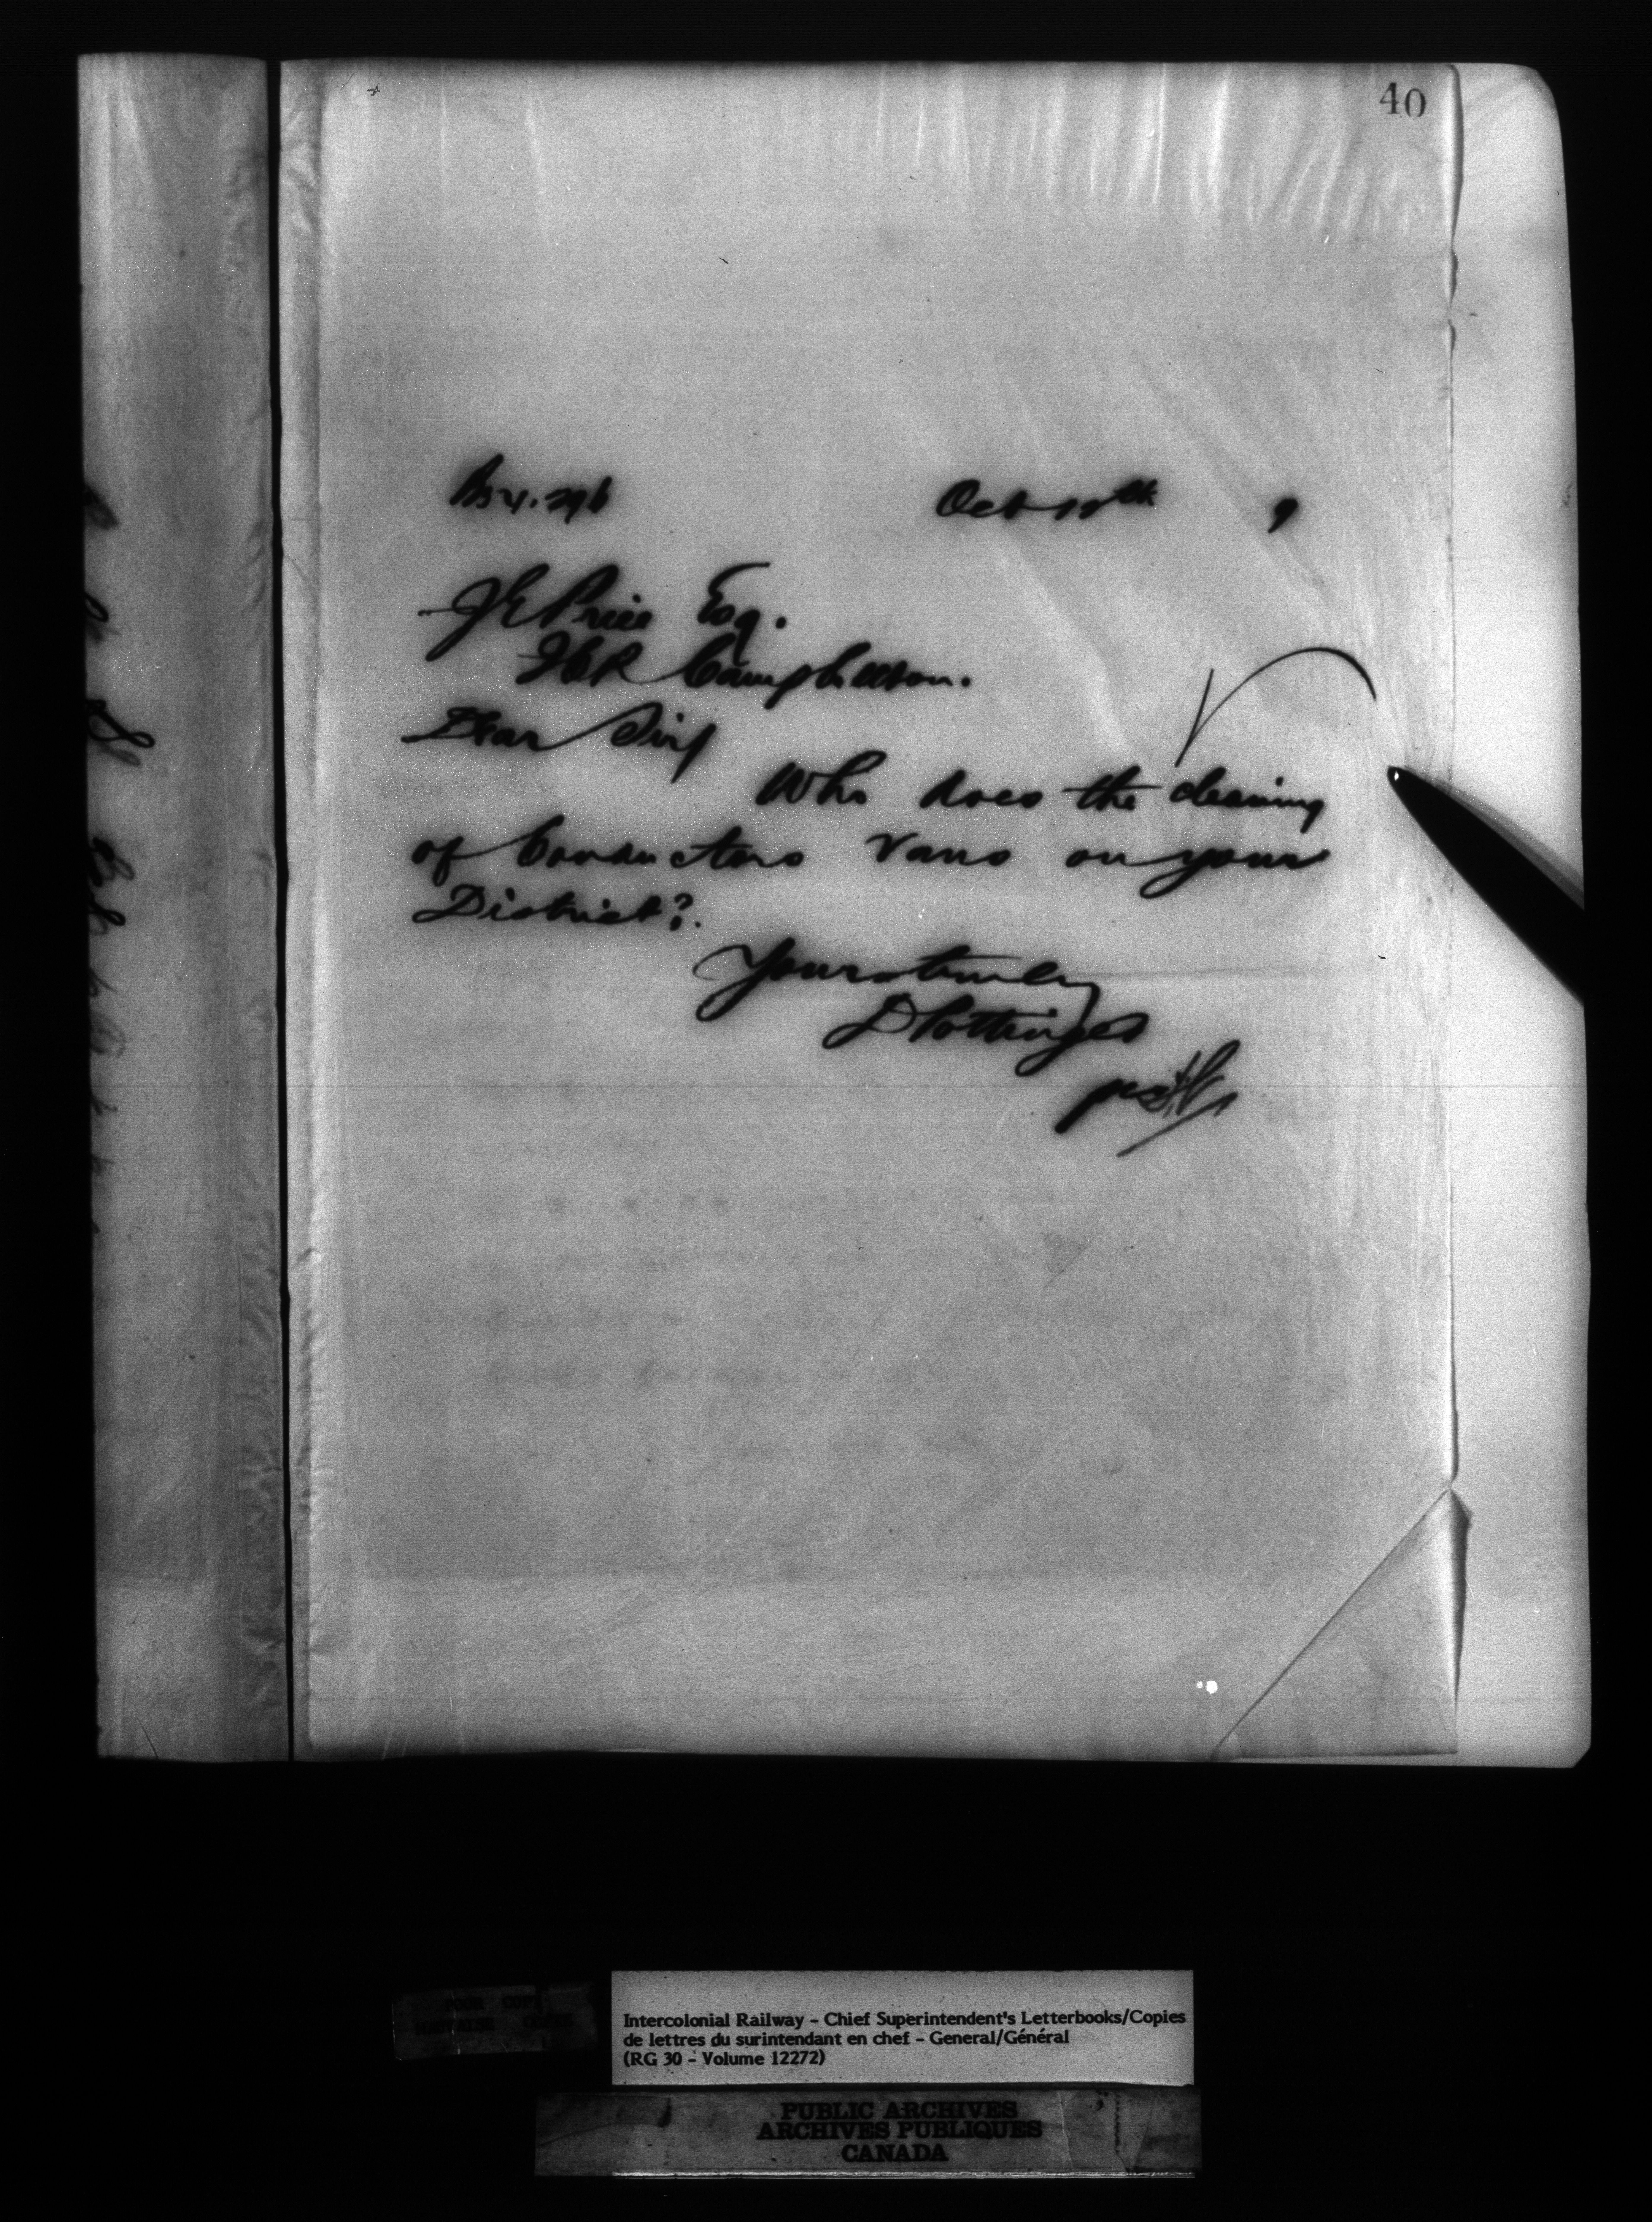 40
Oct 11th 9
J E Price Esq.
Campbellton.
Dear Sir
Who does the cleaning
of Conductors Vans on your
District?
Yours truly
D Pottinger
Intercolonial Railway - Chief Superintendent's Letterbooks/Copies
de lettres du surintendant en chef - General/Général
(RG 30 - Volume 12272)
PUBLIC ARCHIVES
ARCHIVES PUBLIQUES
CANADA